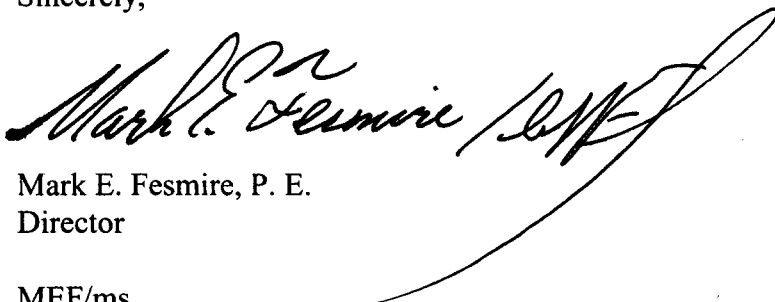 Sincerely,
Mark E. Fesmire
Mark E. Fesmire, P. E.
Director
MEF/ms